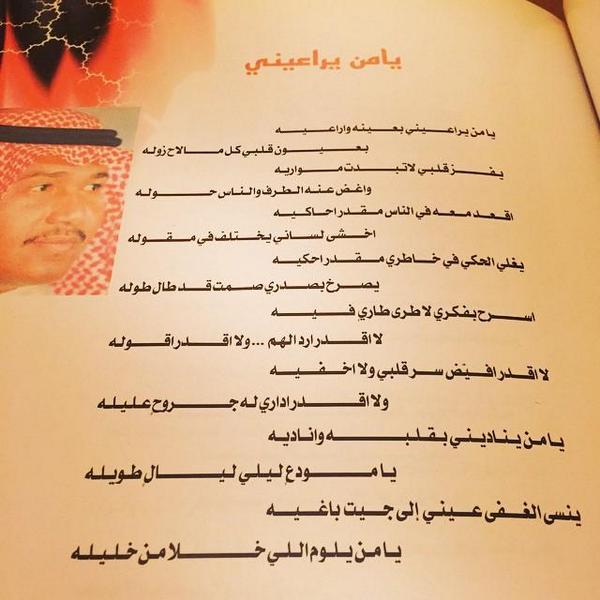 يا من يراعيني
يا من يراعيني بعينه واراعيه
بعيون قلبي كل مالاح زوله
يفز قلبي لا تبدت مواريه
واغض عنه الطرف والناس حوله
اقعد معه في الناس مقدر احاكيه
اخشى لساني يختلف في مقوله
يغلي الحكي في خاطري مقدر احكيه
يصرخ بصدري صمت قد طال طوله
اسرح بفكري لا طرى طاري فيه
لا اقدر ارد الهم ... ولا اقدر اقوله
لا اقدر افيّض سر قلبي ولا اخفيه
ولا اقدر اداري له جروح عليله
يا من يناديني بقلبه واناديه
يا مودع ليلي ليال طويله
ينسى الغفى عيني إلى جيت باغيه
يا من يلوم اللي خلا من خليله